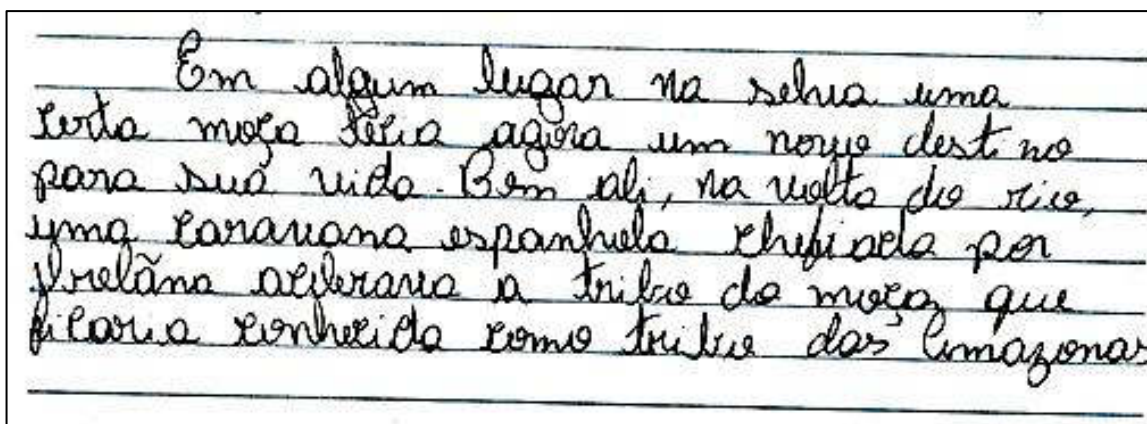 Em algum lugar na selva uma
certa moça teria agora um novo destino
para sua vida. Bem ali, na volta do rio,
uma caravana espanhola chefiada por
a tribo da moça que
ficaria conhecida como tribo das Amazonas